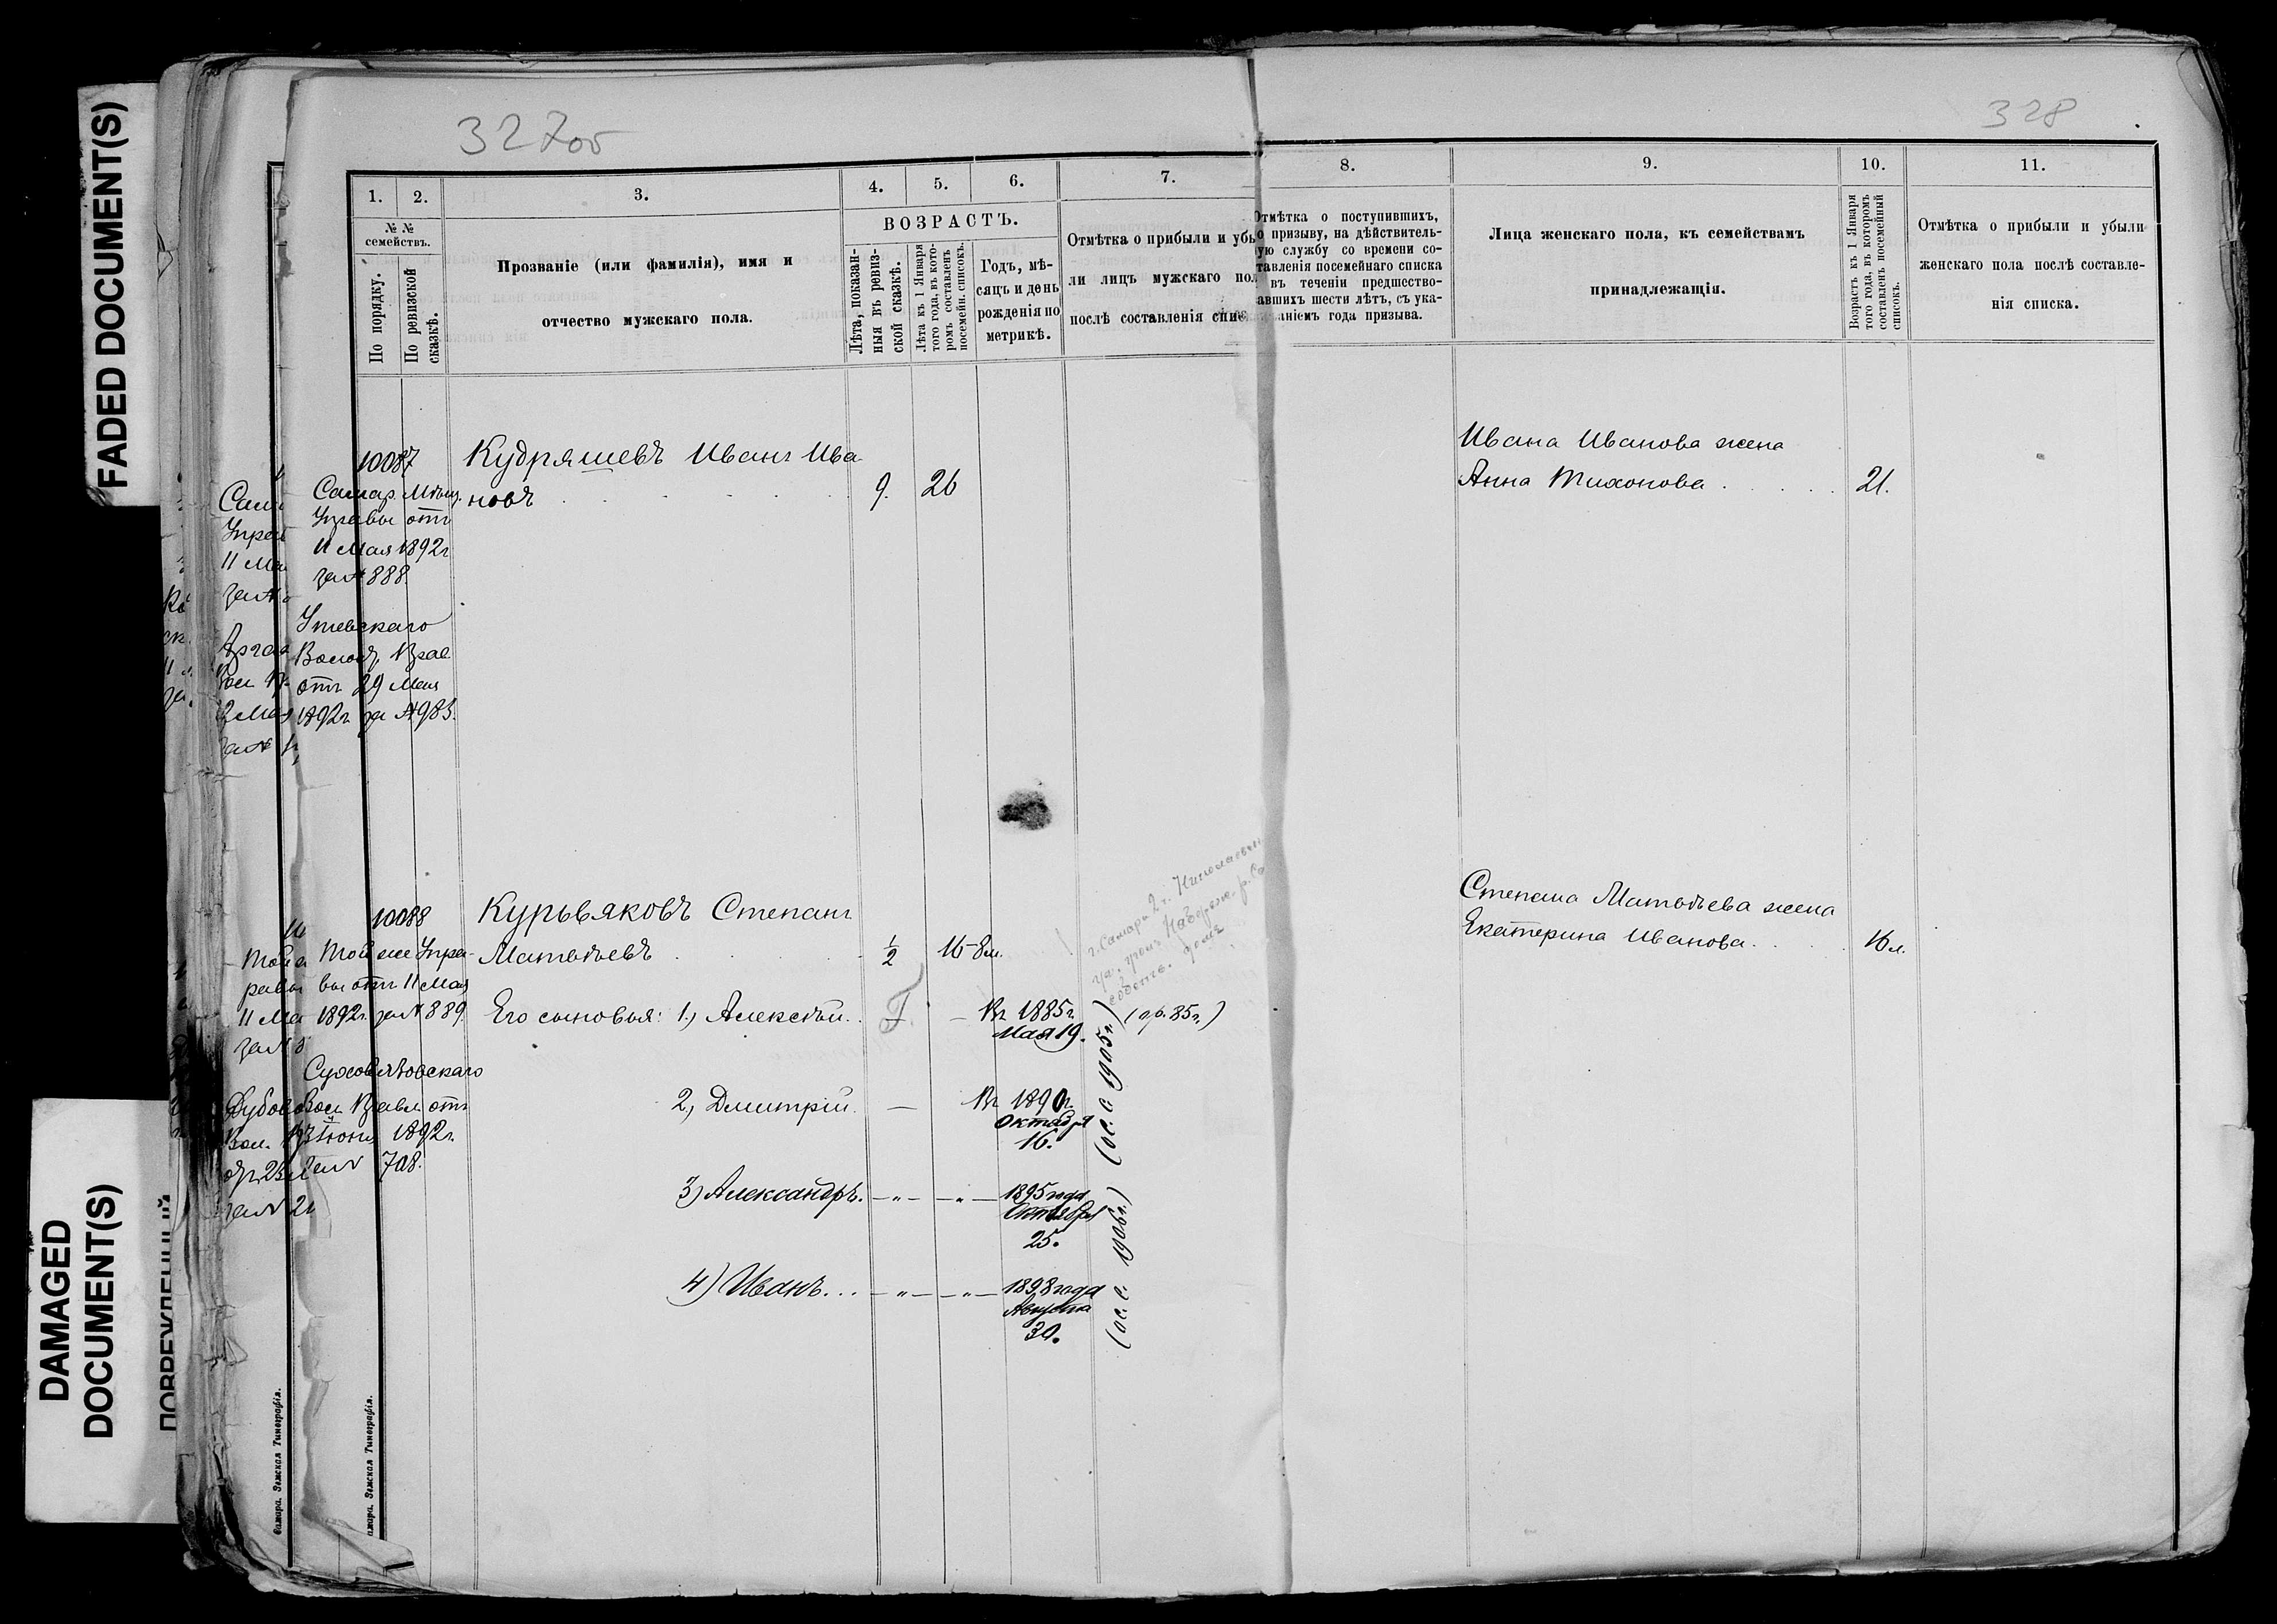 FADED DOCUMENT(S)
DAMAGED
DOCUMENT(S)
327об
328
1.
2.
3.
4.
5.
6.
7.
8.
9.
10.
11.
№ №
семействъ.
По порядку.
По ревизской
сказкѣ.
Прозваніе (или фамилія), имя и
отчество мужскаго пола.
ВОЗРАСТЪ.
Лѣта, показан-
ныя въ ревиз-
ской сказкѣ.
Лѣта къ 1 Января
того года, въ кото-
ромъ составленъ
посемейн. списокъ.
Годъ, мѣ-
сяцъ и день
рожденія по
метрикѣ.
Отмѣтка о прибыли и убы-
ли лицъ мужскаго пол
послѣ составленія спис
Отмѣтка о поступившихъ,
о призыву, на дѣйствитель-
ую службу со времени со-
тавленія посемейнаго списка
въ теченіи предшество-
авшихъ шести лѣтъ, съ ука-
аніемъ года призыва.
Лица женскаго пола, къ семействамъ
принадлежащія.
Возрастъ къ 1 Января
того года, въ которомъ
составленъ посемейный
списокъ.
Отмѣтка о прибыли и убыли
женскаго пола послѣ составле-
нія списка.
10087
Самар. Мѣщ.
Управы отъ
11 Мая 1892г
за № 888.
Утевскаго
Волост. Прав.
отъ 29 Мая
1892г. за № 983.
Кудряшевъ Иванъ Ива-
новъ
9. 26
Ивана Иванова жена
Анна Тихонова 21.
10088
Той же Упра-
вы отъ 11 Мая
1892г. за № 889.
Вол. Правл. отъ
Іюня 1892г.
за № 708.
Курьяковъ Степанъ
Матвѣевъ ½ 16-8м.
г. Самара 2 г.
Его сыновья: 1, Алексѣй. — Въ 1885г.
Мая 19.
(пр. 85г.)
2, Дмитрій. — Въ 1890г.
Октября
16.
(ос. с. 1905г.)
3) Александръ. —„— —„— 1895 года
Октября
25.
4) Иванъ... —„— —„— 1898 года
Августа
30.
(ос. с. 1906г.)
Степана Матвѣева жена
Екатерина Иванова 16 л.
Самара. Земская Типографія.
амара. Земская Типографія.